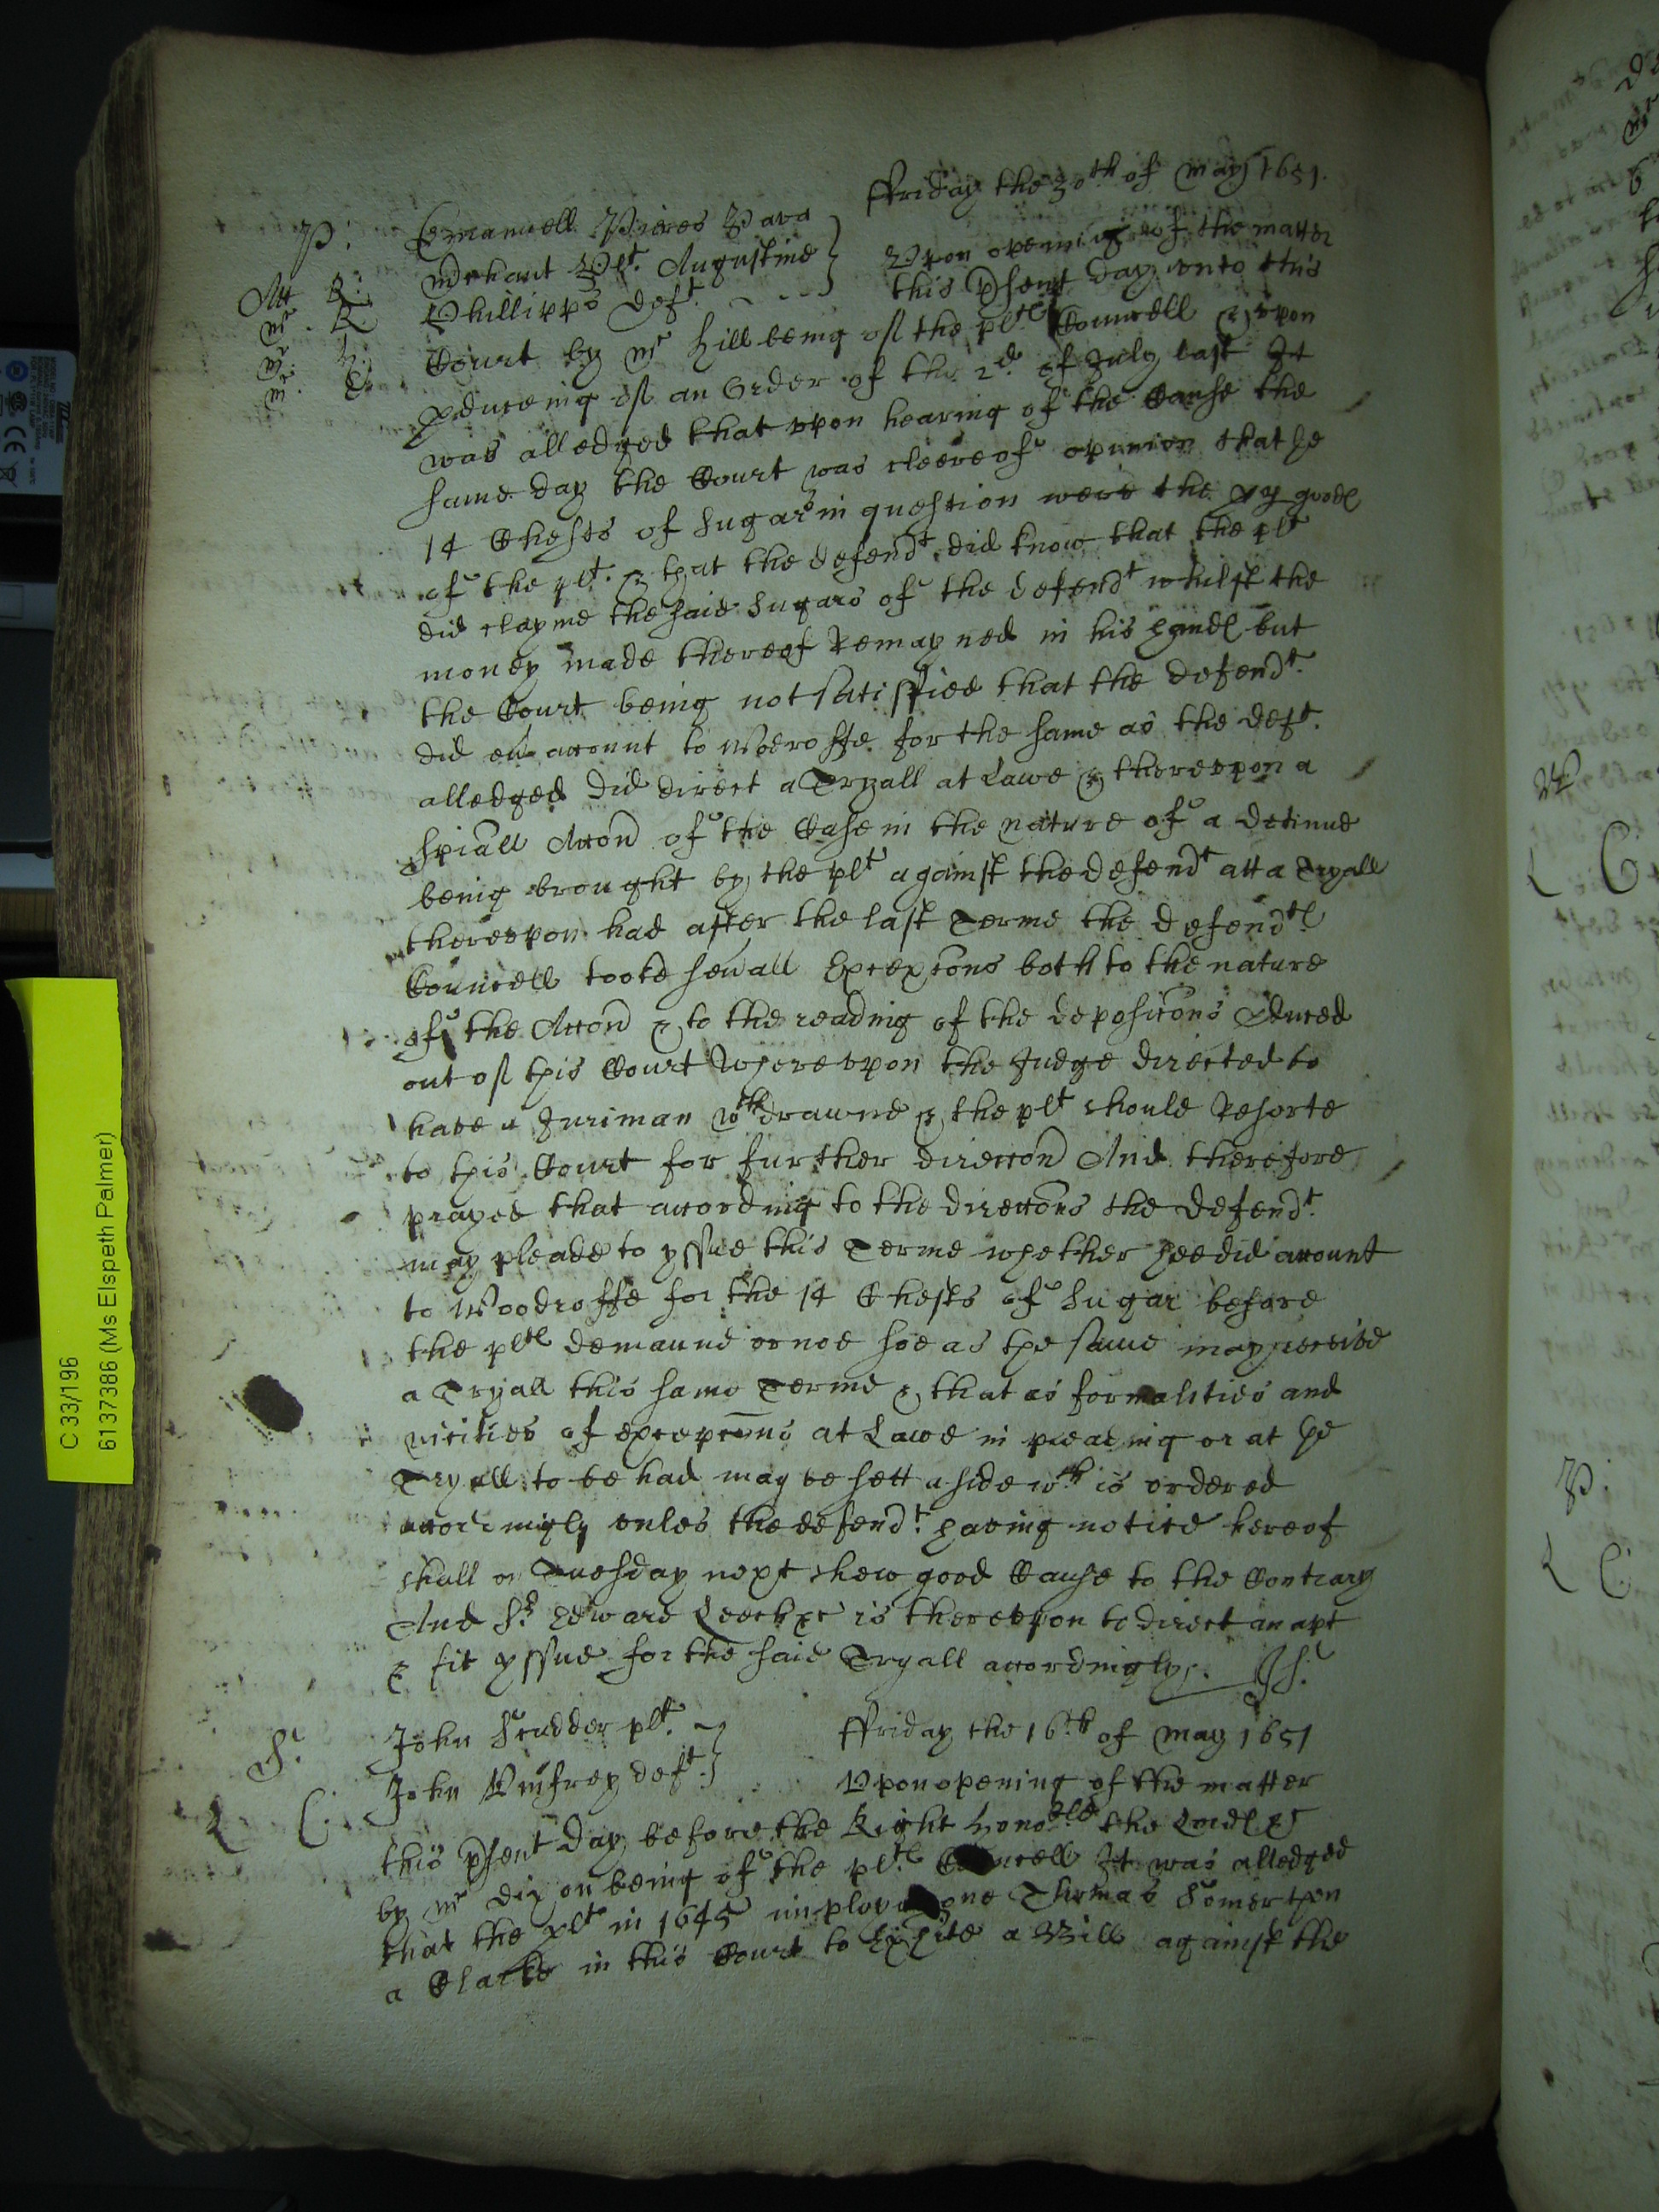 ffriday the 30th of may 1651.
P: Emanuell Pieres Pava
Mrchant Plt. Augustine } Vpon opening of the matter
Att R: Phillipps Deft. this psent day vnto this
mr. R Court by mr Hill being of the pltes Councell & vpon
mr. h: pduceing of an Order of the 2d. of July last It
mr. C. was alledged that vpon hearing of the Cause the
same day the Court was cleere of opinion that the
14 Chests of Sugars in question were the goodes
of the plt. & that the defendt. did know that the plt
did clayme the said Sugars of the defendt whilst the
money made thereof Remayned in his handes but
the Court being not satisffied that the defendt.
did account to Woodroffe for the same as the deft.
alledged did direct a Tryall at Lawe & therevpon a
spiall Accon of the Case in the nature of a detinue
being brought by the plt against the defendt att a Tryall
therevpon had after the last Terme the defendtes
Councell tooke seuall Excepcons both to the nature
of the Accon & to the reading of the deposicons pduced
out of this Court Wherevpon the Judge directed to
have a Juriman wthdrawne & the plt should Resorte
to this Court for further direccon And therefore
prayed that according to the direccons the defendt.
may pleade to yssue this Terme whether hee did account
to Woodroffe for the 14 Chests of Sugar before
the pltes demaund or noe soe as the same may receive
a Tryall this same Terme & that as formalities and
nicities of excepcons at Lawe in pleading or at the
Tryall to be had may be sett aside wch is ordered
accordingly vnles the defendt. having notice hereof
shall on Tuesday next shew good Cause to the Contrary
And Sr. Edward Leech &c is therevpon to direct an apt
& fit yssue for the said Tryall accordingly.
S: John Scudder plt. } ffriday the 16th of may 1651
John Pmfrey deft. } Vpon opening of the matter
L C: this psent day before the Right Honoble the Lordes &c
by mr Dixon being of the pltes Councell It was alledged
that the plt in 1645 imployed one Thomas Somerton
a Clarke in this Court to a Bill against the
C 33/196
6137386 (Ms Elspeth Palmer)